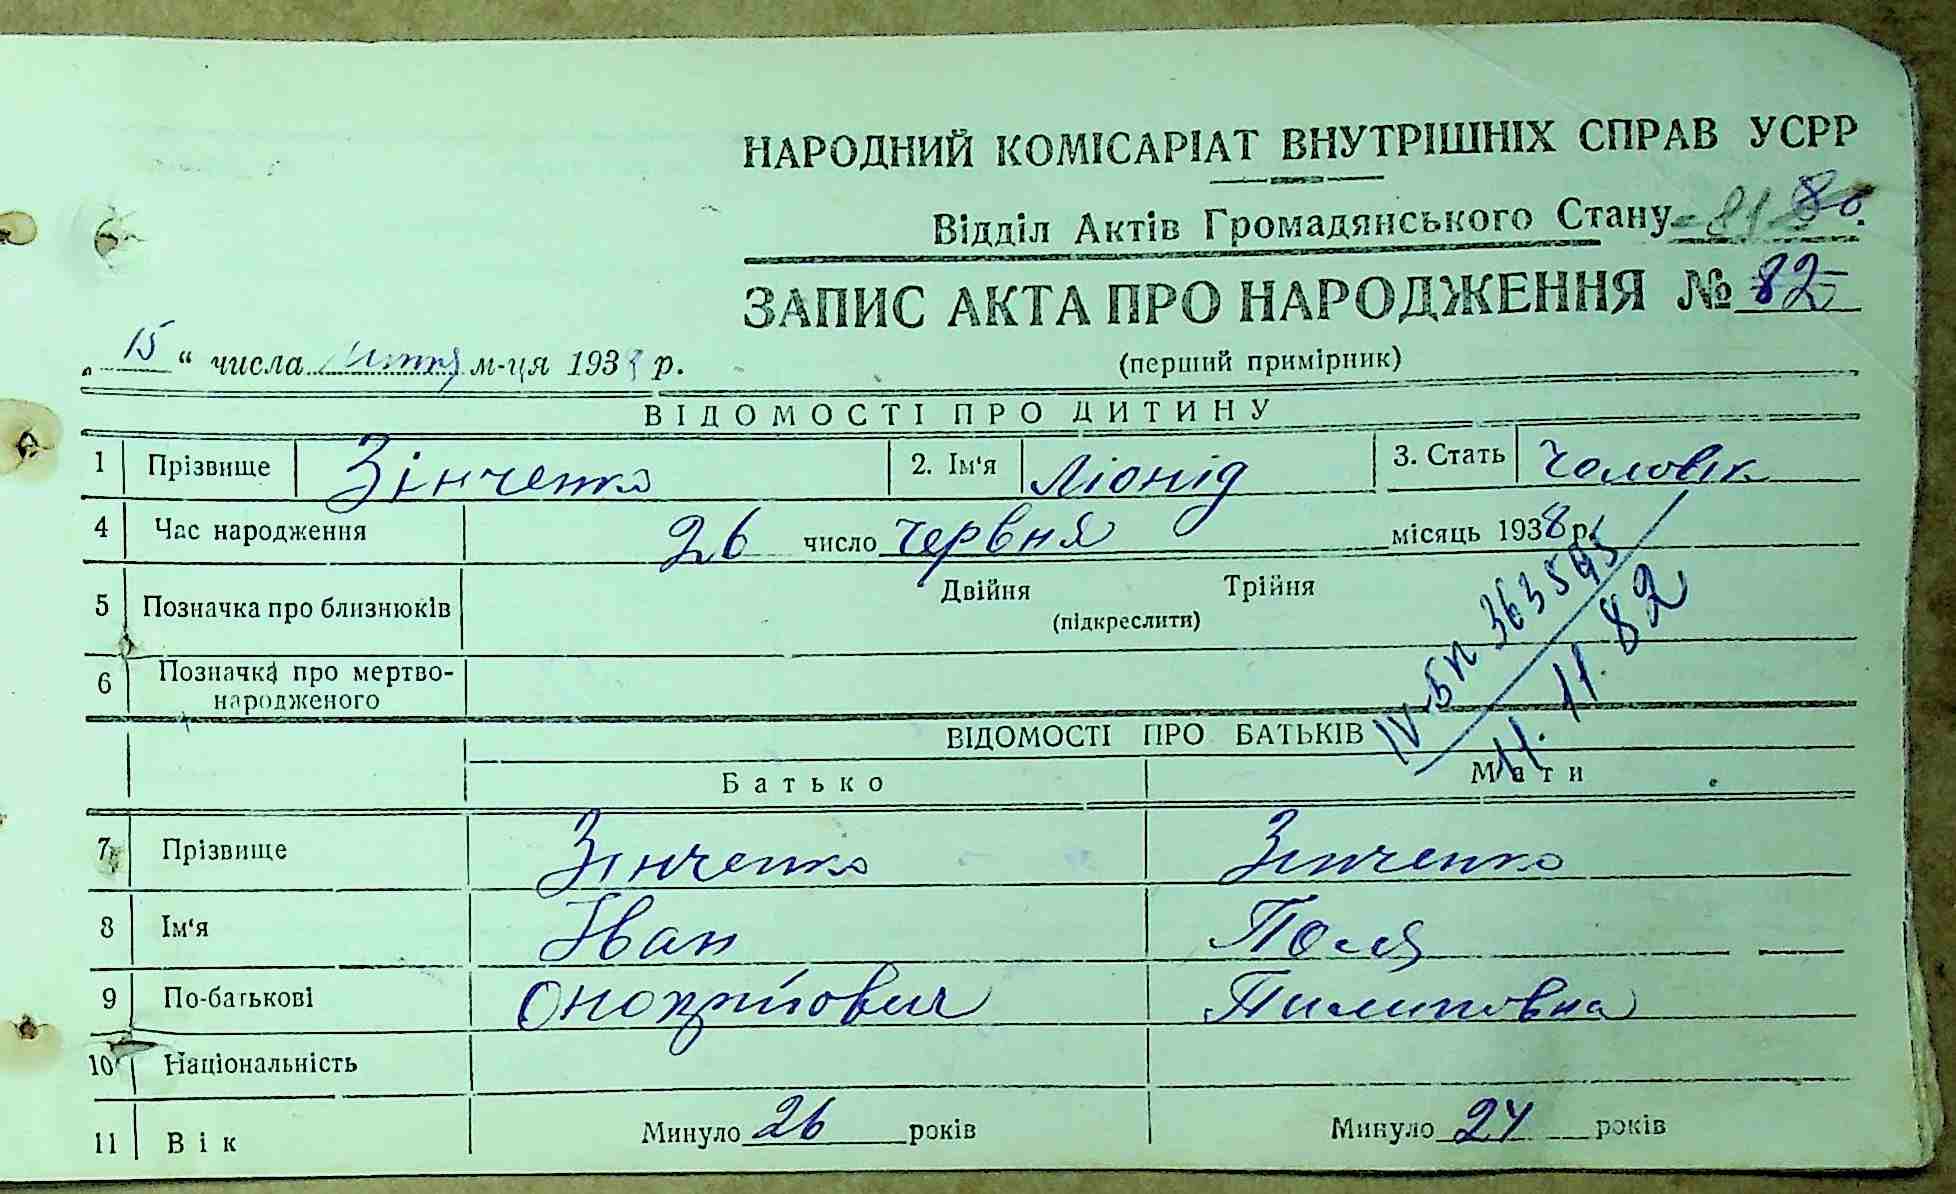 НАРОДНИЙ КОМІСАРІАТ ВНУТРІШНІХ СПРАВ УСРР
Відділ Актів Громадянського Стану 81 80
ЗАПИС АКТА ПРО НАРОДЖЕННЯ № 82
„15“ числа м-ця 1938 р.
(перший примірник)
ВІДОМОСТІ ПРО ДИТИНУ
1 Прізвище Зінченко 2. Ім'я Ліонід 3. Стать Чоловік
4 Час народження 26 число червня місяць 1938 р.
5 Позначка про близнюків Двійня Трійня
(підкреслити)
6 Позначка про мертво-
народженого
IV-БП 363595
11.11.82
ВІДОМОСТІ ПРО БАТЬКІВ
Батько Мати
7 Прізвище Зінченко Зінченко
8 Ім'я Іван Поля
9 По-батькові Онопрійович Пилиповна
10 Національність
11 Вік Минуло 26 років Минуло 24 років